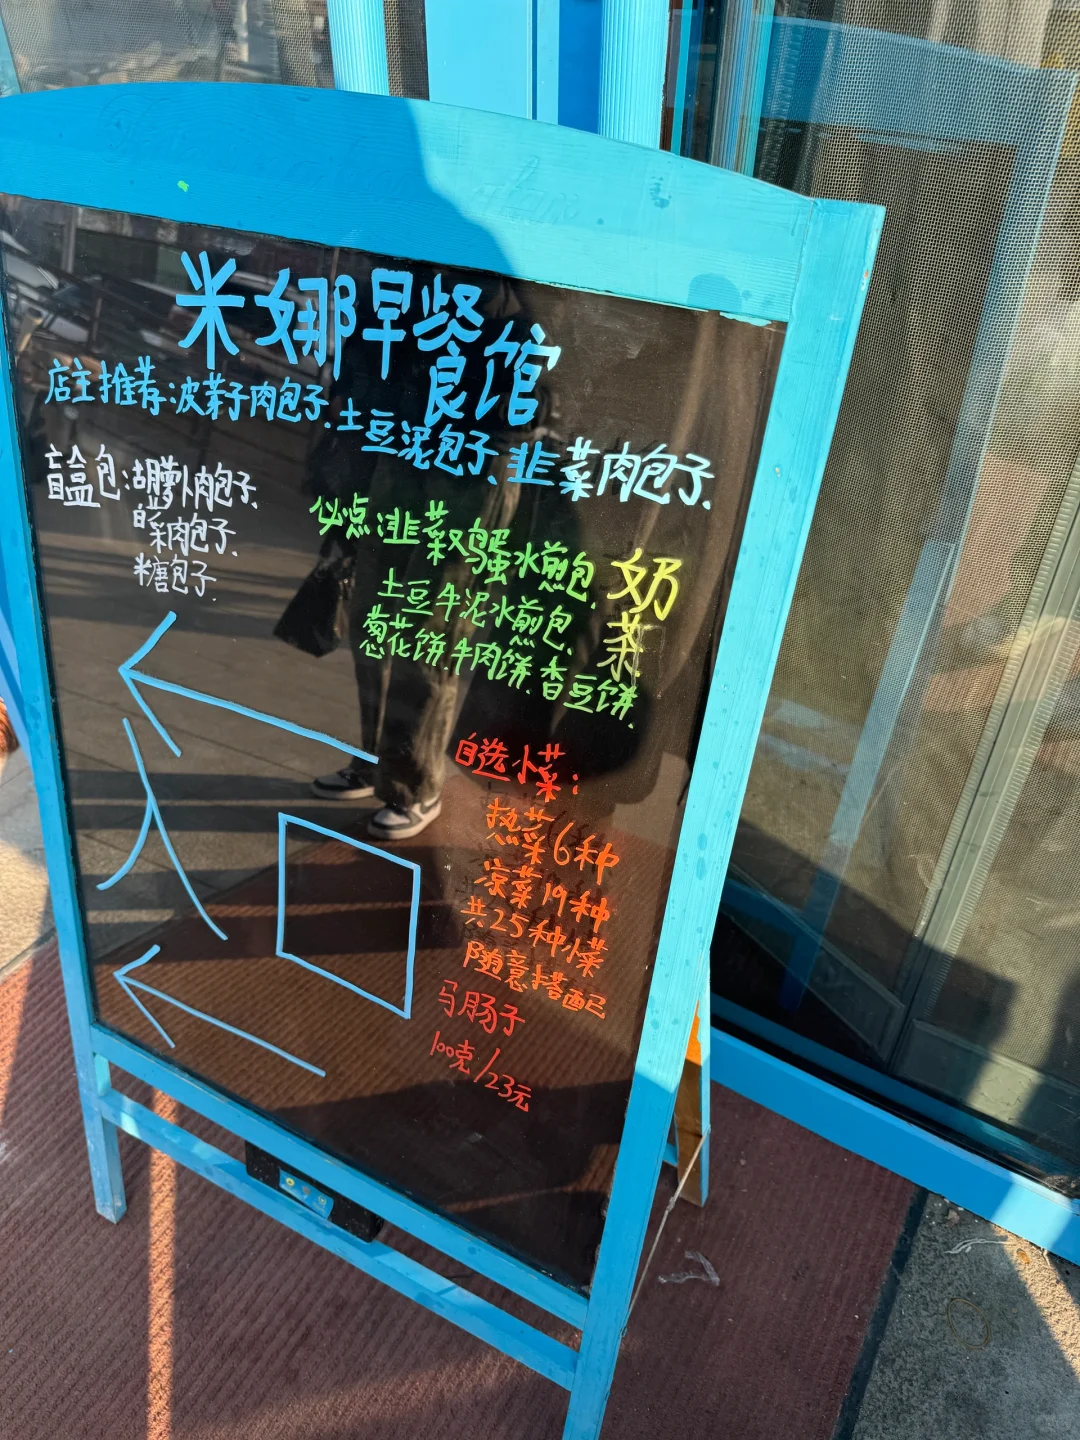 米娜早餐馆
店主推荐:波菜子肉包子.土豆泥包子、韭菜肉包子.
盲盒包:胡萝卜肉包子.
白菜肉包子.
糖包子.
必点:韭菜鸡蛋水煎包.
土豆牛泥水煎包.
葱花饼.牛肉饼.香豆饼.
奶茶.
自选小菜:
热菜6种
凉菜19种
共25种小菜
随意搭配
马肠子
100克/23元
入口